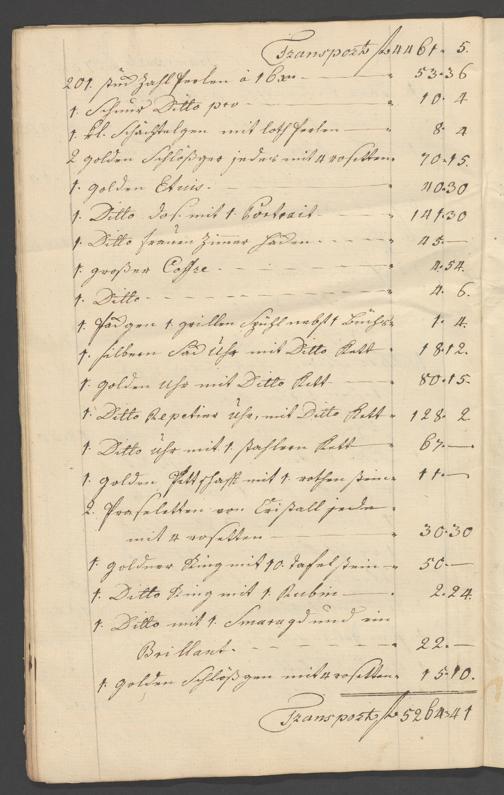 Transport f 4461 " 5.
201. stuck Zahl Perlen à 16 xr — " 53 " 36
1. Schnur Ditto pro — " 10 " 4
1. kl. Schächtelgen mit loth Perlen — " 8 " 4
2 golden Schlößger jedes mit 4 rosetten " 70 " 15.
1. golden Etuis. — " 40 " 30
1. Ditto dos. mit 1. Portrait — " 141 " 30
1. Ditto frauen Zimmer — " 45 " —
1. großer Coffre. — " 4 " 54.
1. Ditto — " 4 " 6.
1. 1. nebst 1 Büchs " 1 " 4.
1. silbern Sack Uhr mit Ditto Kett " 18 " 12.
1. golden Uhr mit Ditto Kett — " 80 " 15.
1. Ditto Repetier Uhr, mit Ditto Kett " 128 " 2
1. Ditto Uhr mit 1. stahlern Kett — " 67 " —
1. golden Pittschafft mit 1. rothen stein " 11 " —
2. Praseletten von Cristall jede "
mit 4 rosetten — " 30 " 30
1. goldner Ring mit 10. tafelstein " 50 " —
1. Ditto Ring mit 1 Rubin — " 2 " 24.
1. Ditto mit 1. Smaragd und ein
Brillant. — " 22 " —
1. golden Schlößgen mit 4 rosetten " 15 " 10.
Transport f 5264 " 41